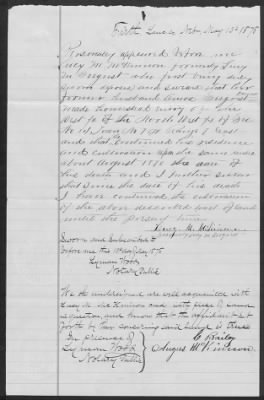 Firth, Neb, May 15th 1878
Personally appeared before me
Lucy M. McKinnon formerly Lucy
M. who first being duly
sworn deposes and swears that her
former husband Amos
made homestead entry of the
West ½ of the North West ¼ of Sec
No 12 Town No 7 N Range 7 East
and that he continued his residence
and cultivation of said land until
about August 1870 the date of
his death and I further swear
that since the date of his death
I have continued the cultivation
of the above described land
until the present time
Lucy M. McKinnon
formerly Lucy M.
Sworn and subscribed to
before me this 15th day of May 1878
Lyman Wood
Notary Public
We the undersigned are well acquainted with
Lucy M. McKinnon and with piece of land
in question, and know that the affidavit set
forth by her concerning said land is true
In presence of
Lyman Wood
Notary Public
C Bailey
Angus McKinnon